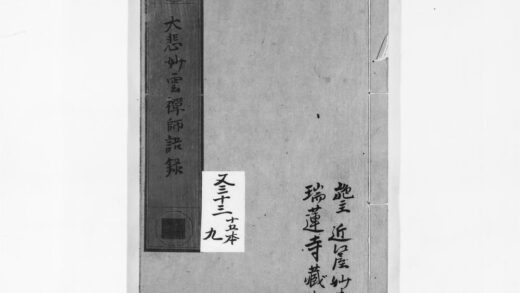 大悲妙雲禪師語録
又三十三 十五本
九
施主 近江屋妙
瑞蓮寺藏